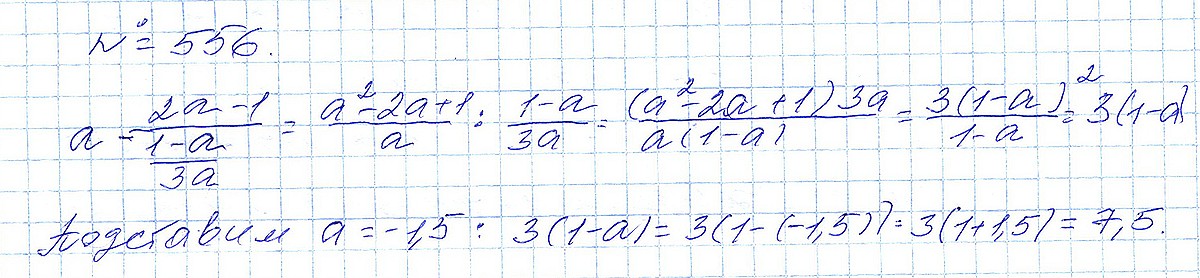 № = 556.
a - \frac{2a-1}{\frac{1-a}{3a}} = \frac{a^2-2a+1}{a} : \frac{1-a}{3a} = \frac{(a^2-2a+1)3a}{a(1-a)} = \frac{3(1-a)^2}{1-a} = 3(1-a)
Подставим a = -1,5 : 3(1-a) = 3(1-(-1,5)) = 3(1+1,5) = 7,5.